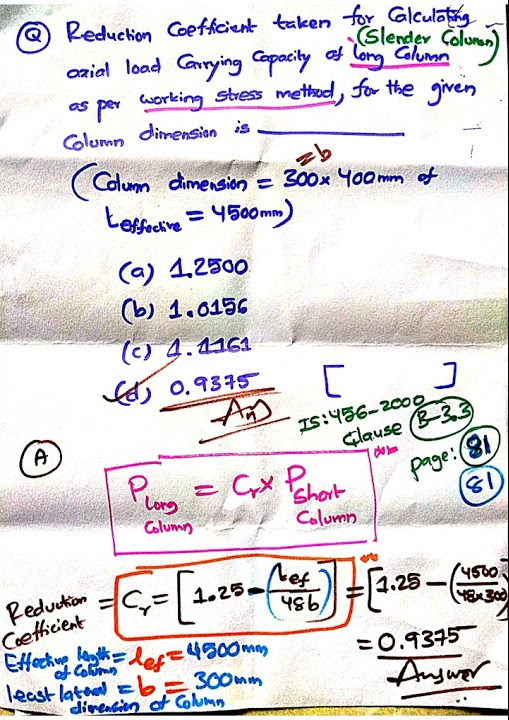 Q Reduction Coefficient taken for Calculating
(Slender Column)
axial load Carrying Capacity of Long Column
as per working stress method, for the given
Column dimension is ________
=b
(Column dimension = 300 x 400mm of
Leffective = 4500mm)
(a) 1.2500
(b) 1.0156
(c) 1.1161
(d) 0.9375
Ans
[ ]
IS:456-2000
Clause B-3.3
page: 81
81
A
P Long Column = Cr x P Short Column
Reduction Coefficient = Cr = [1.25 - (Lef/48b)] = [1.25 - (4500/48x300)
= 0.9375
Answer
Effective length of Column = lef = 4500mm
least lateral dimension of Column = b = 300mm